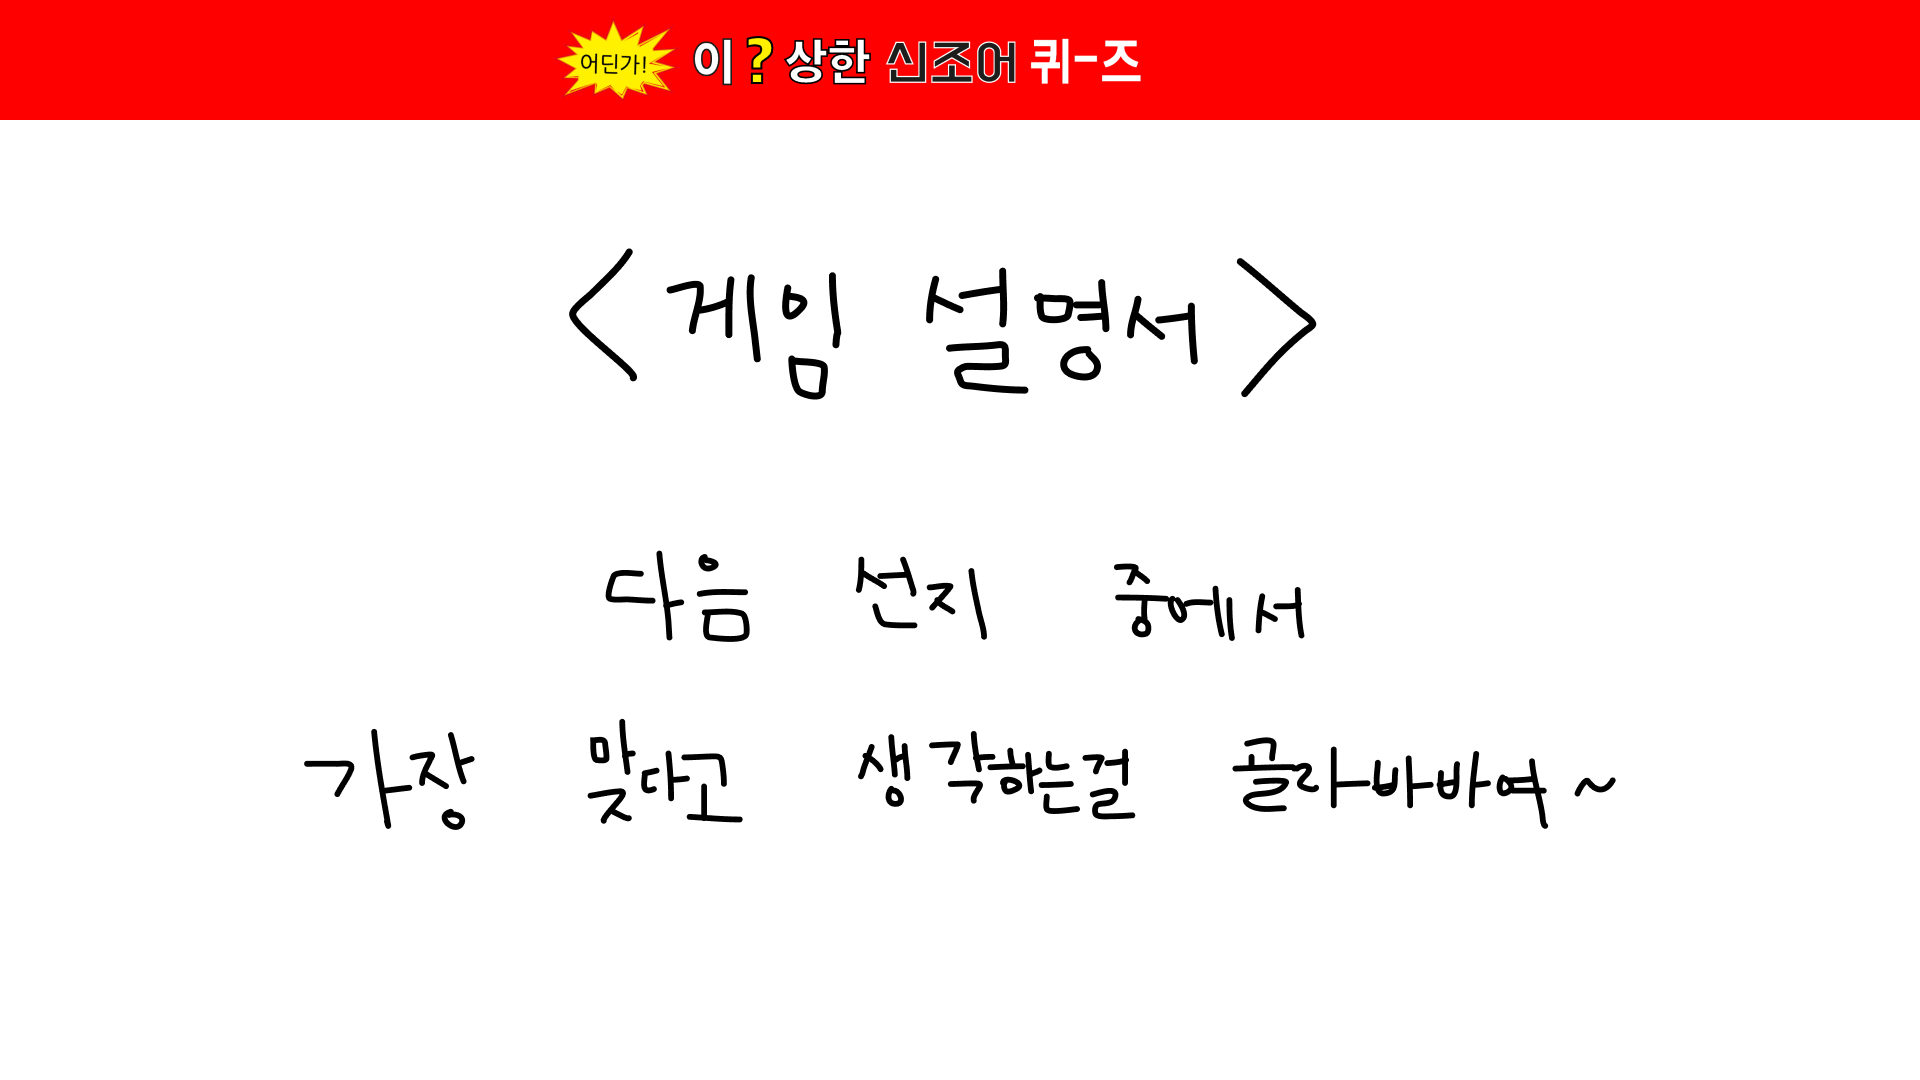 어딘가! 이?상한 신조어 퀴-즈
<게임 설명서>
다음 선지 중에서
가장 맞다고 생각하는걸 골라바바여~